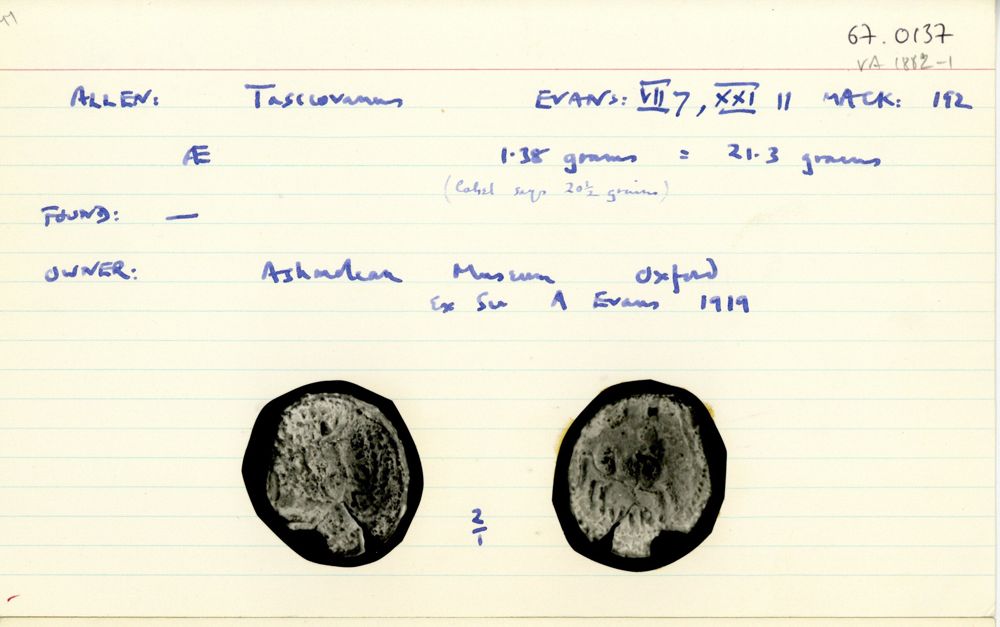 67.0137
VA 1882-1
ALLEN: Tasciovanus EVANS: VII 7, XXI 11 MACK: 192
Æ 1.38 grams = 21.3 grains
(Label says 20½ grains)
FOUND: —
OWNER: Ashmolean Museum Oxford
Ex Sir A Evans 1919
2/1